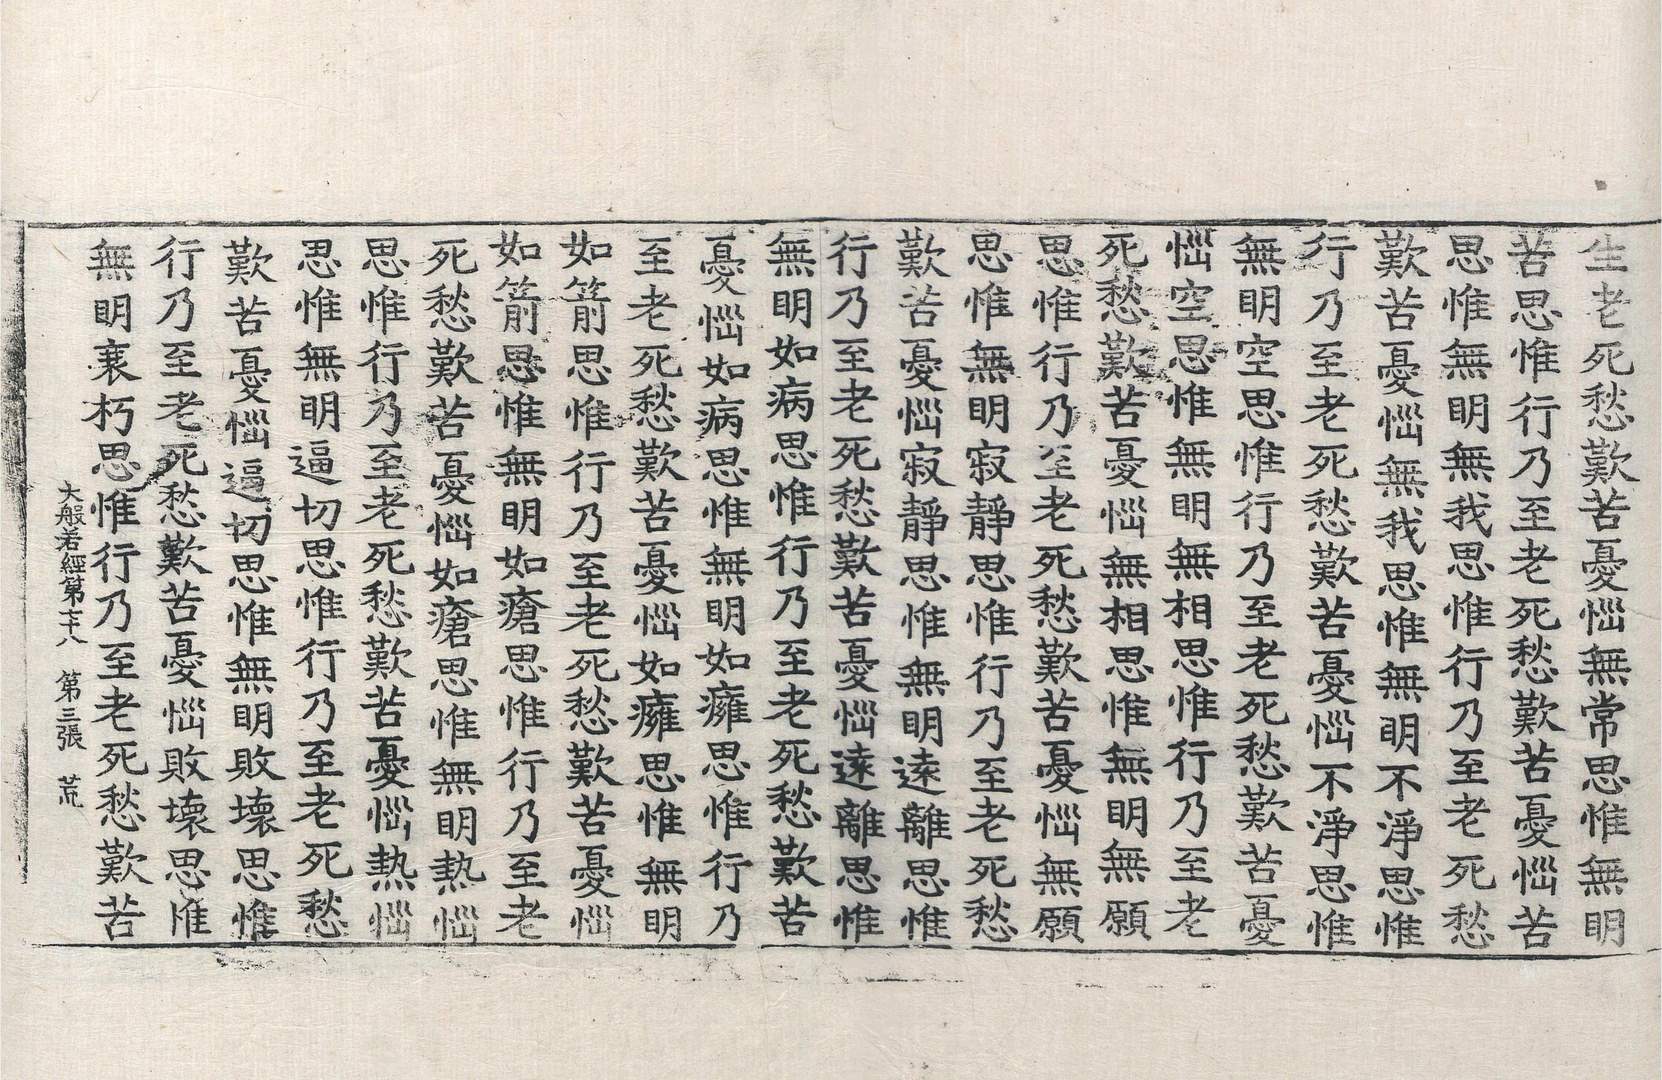 生老死愁歎苦憂惱無常思惟無明
苦思惟行乃至老死愁歎苦憂惱苦
思惟無明無我思惟行乃至老死愁
歎苦憂惱無我思惟無明不淨思惟
行乃至老死愁歎苦憂惱不淨思惟
無明空思惟行乃至老死愁歎苦憂
惱空思惟無明無相思惟行乃至老
死愁歎苦憂惱無相思惟無明無願
思惟行乃至老死愁歎苦憂惱無願
思惟無明寂靜思惟行乃至老死愁
歎苦憂惱寂靜思惟無明遠離思惟
行乃至老死愁歎苦憂惱遠離思惟
無明如病思惟行乃至老死愁歎苦
憂惱如病思惟無明如癰思惟行乃
至老死愁歎苦憂惱如癰思惟無明
如箭思惟行乃至老死愁歎苦憂惱
如箭思惟無明如瘡思惟行乃至老
死愁歎苦憂惱如瘡思惟無明熱惱
思惟行乃至老死愁歎苦憂惱熱惱
思惟無明逼切思惟行乃至老死愁
歎苦憂惱逼切思惟無明敗壞思惟
行乃至老死愁歎苦憂惱敗壞思惟
無明衰朽思惟行乃至老死愁歎苦
大般若經第七十八 第三張 荒